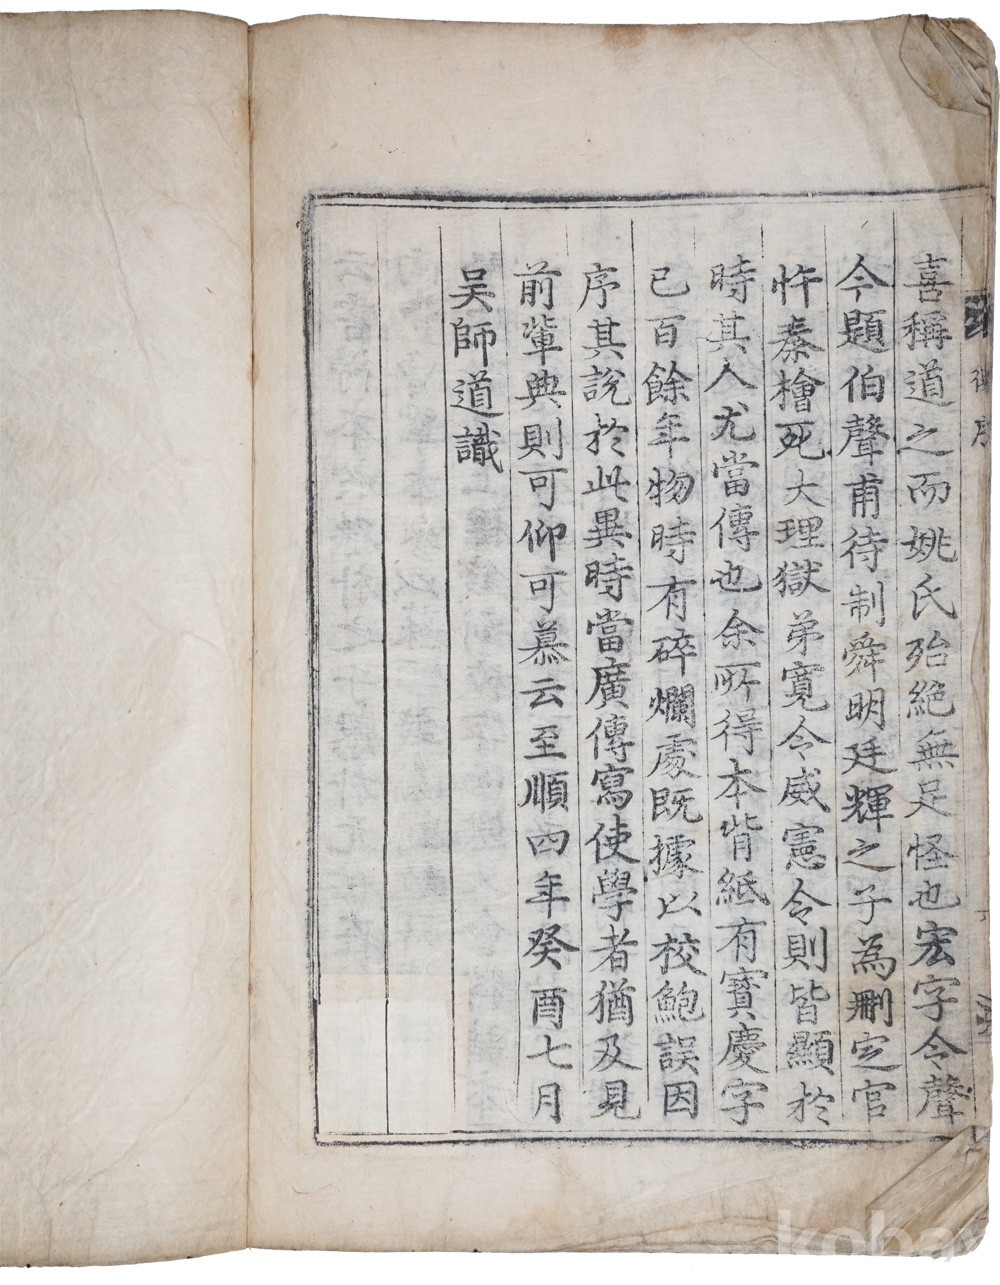 喜稱道之而姚氏殆絶無足怪也宏字令聲
今題伯聲甫待制舜明廷輝之子為刪定官
忤秦檜死大理獄弟寛令威憲令則皆顯於
時其人尤當傳也余所得本背紙有寶慶字
已百餘年物時有碎爛處既據以校鮑誤因
序其說於此異時當廣傳寫使學者猶及見
前輩典則可仰可慕云至順四年癸酉七月
吴師道識
koba